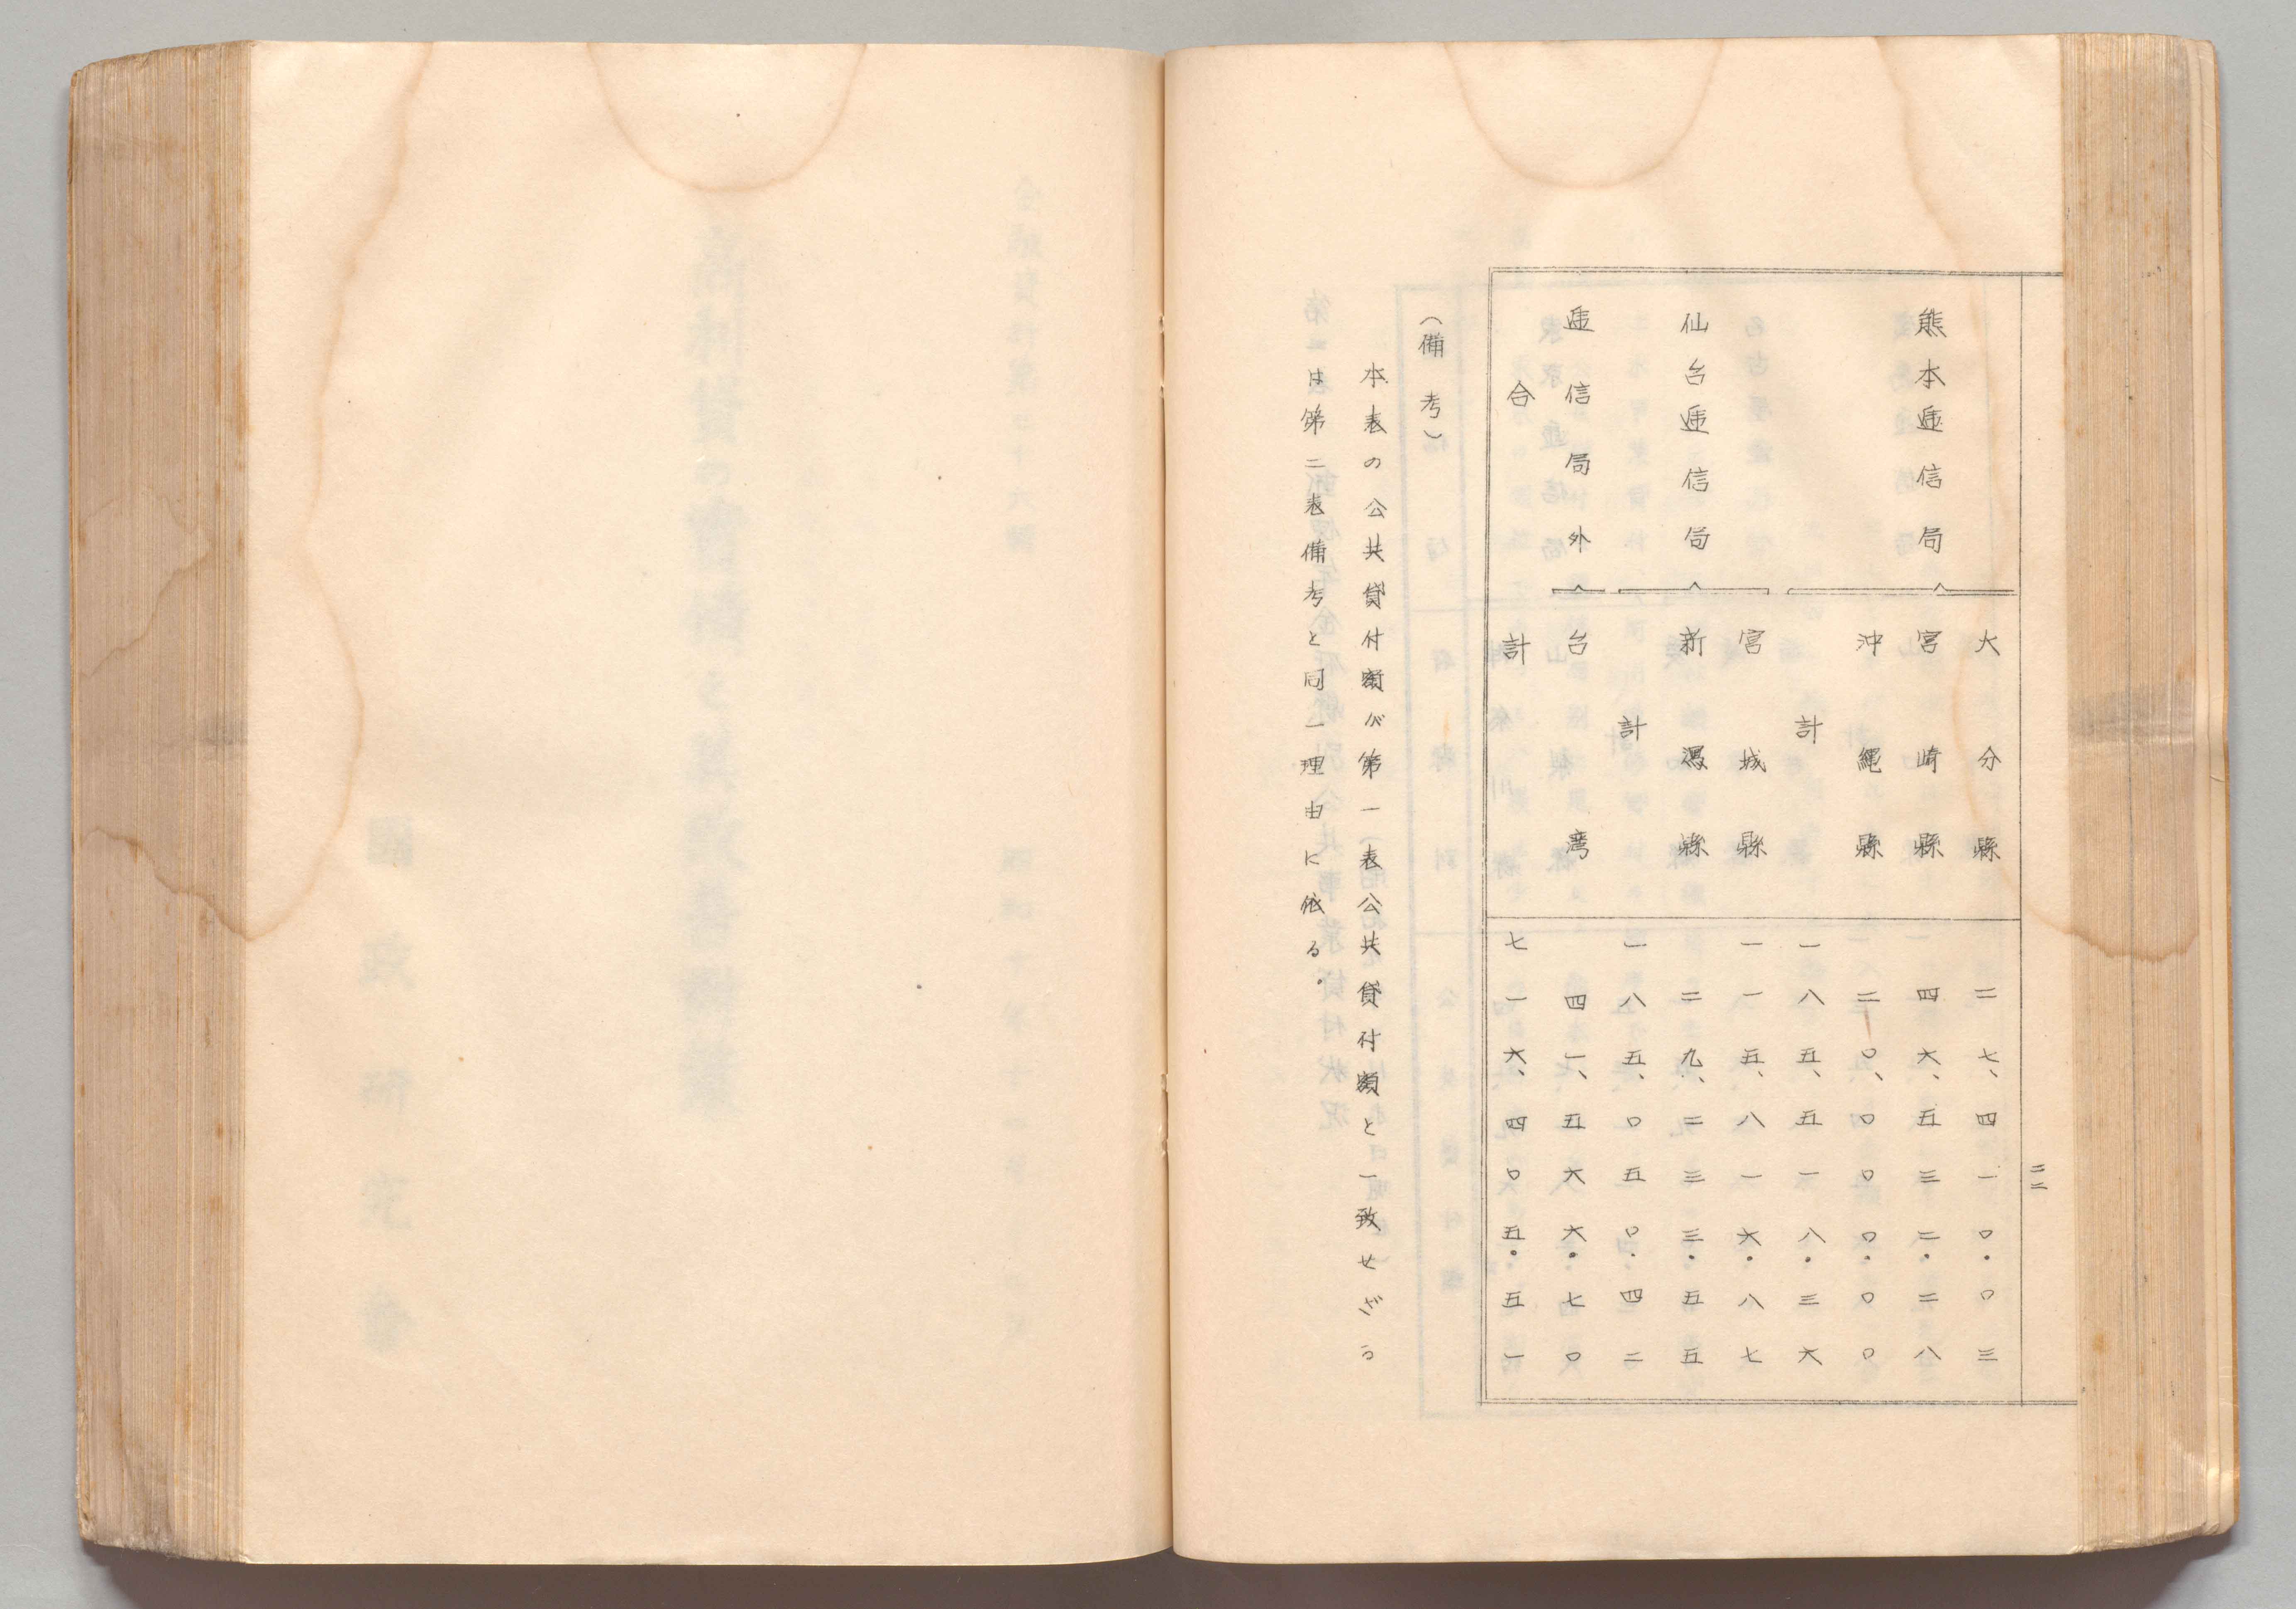 二二
大分縣 二七、四一〇・〇三
熊本逓信局 宮崎縣 四六、五三二・二八
沖縄縣 二〇、〇〇〇・〇〇
計 一八五、五一八・三六
宮城縣 一一五、八一六・八七
仙台逓信局 新潟縣 二九、二三三・五五
計 一八五、〇五〇・四二
逓信局外 台湾 四一、五六六・七〇
合計 七一六、四〇五・五一
（備考）
本表の公共貸付額が第一表公共貸付額と一致せざる
は第二表備考と同一理由に依る。